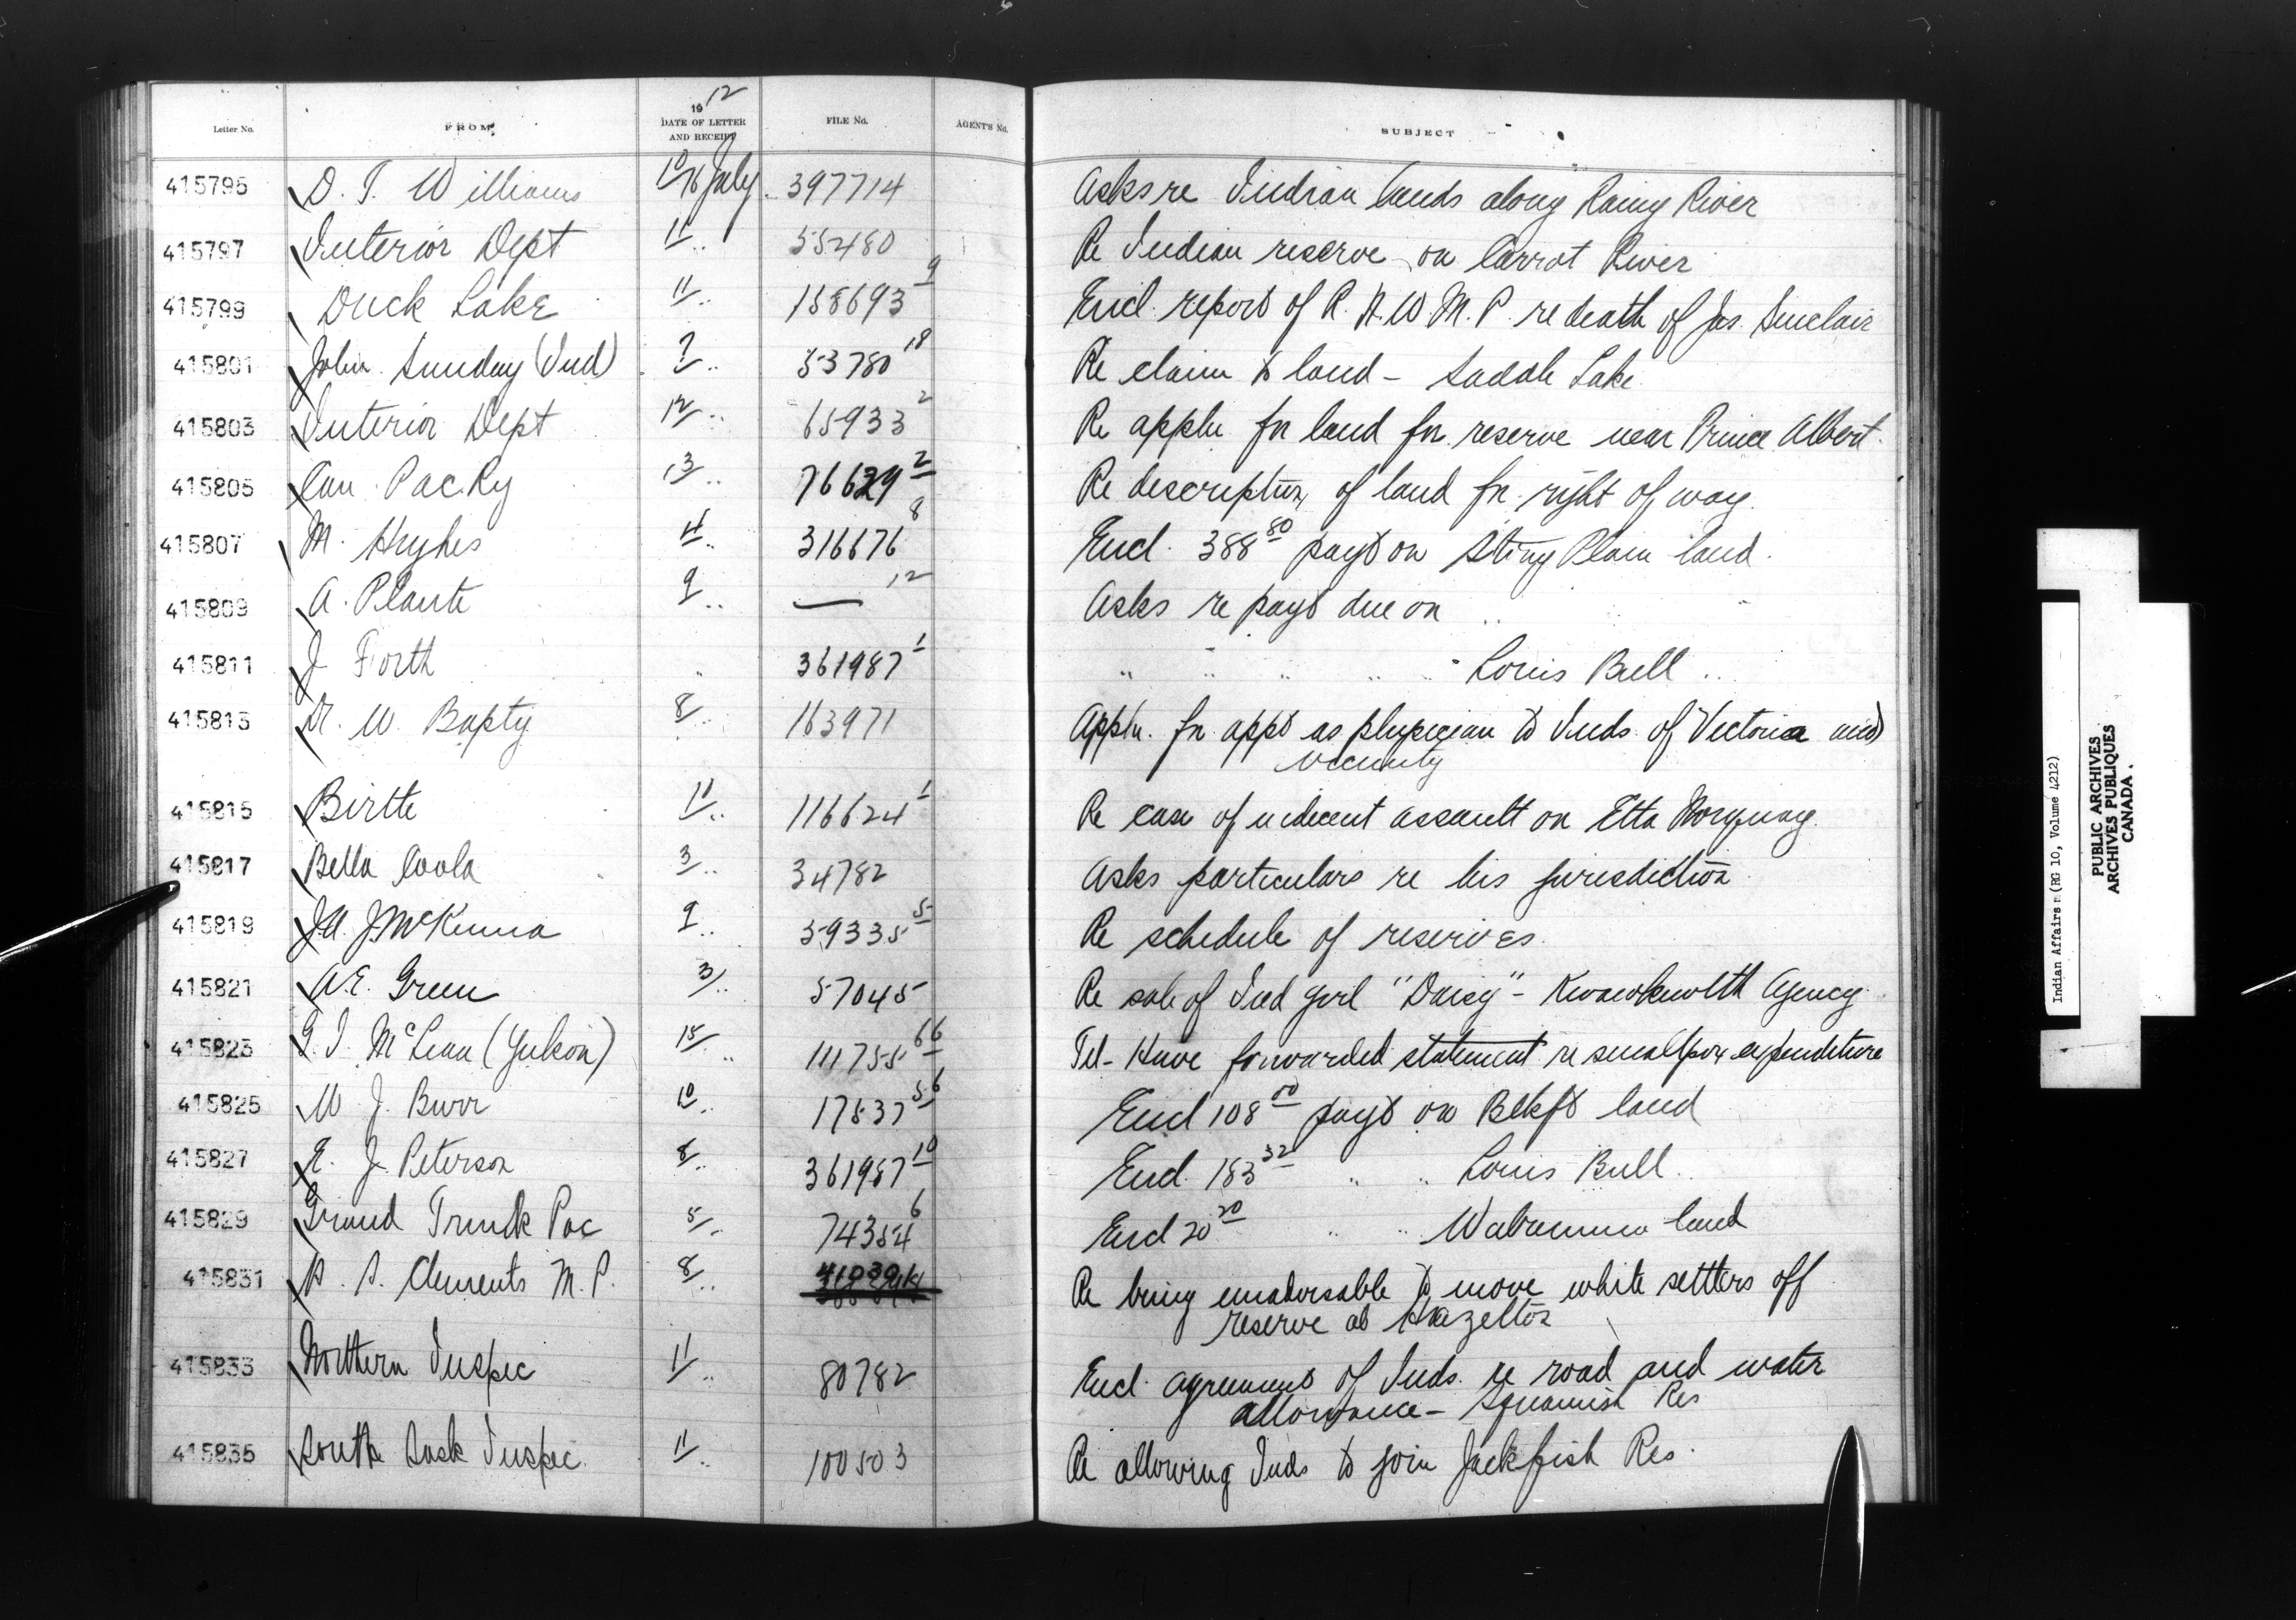 1912
Letter No. FROM DATE OF LETTER AND RECEIPT FILE No. AGENT'S No. SUBJECT
415795 D. T. Williams 10/16 July 397714 Asks re Indian lands along Rainy River
415797 Interior Dept 11/ .. 55480 Re Indian reserve on Carrot River
415799 Duck Lake 11/ .. 158693 9 Encl. report of R.N.W.M.P. re death of Jas. Sinclair
415801 John Sunday (Ind) 7/ .. 53780 18 Re claim to land - Saddle Lake
415803 Interior Dept 12/ .. 65933 2 Re appln for land for reserve near Prince Albert.
415805 Can. Pac Ry 13/ .. 76629 2 Re description of land for right of way.
415807 M. Hughes 11/ .. 316676 8 Encl. 388 80 payt on Stony Plain land.
415809 A. Plante 9/ .. — 12 Asks re payt due on ..
415811 J Forth .. 361987 1 .. .. .. .. .. Louis Bull ..
415813 Dr. W. Bapty 8/ .. 163971 Appln. for appt as physician to Inds of Victoria and
vicinity
415815 Birtle 11/ .. 116624 1 Re case of indecent assault on Etta Norquay.
415817 Bella Coola 3/ .. 34782 Asks particulars re his jurisdiction
415819 J.A.J. McKenna 9/ .. 59335 5 Re schedule of reserves.
415821 A.E. Green 3/ .. 57045 Re sale of Ind girl "Daisy" - Kwawkewlth Agency
415823 G. I. McLean (Yukon) 15/ .. 111755 66 Tel- Have forwarded statement re smallpox expenditure
415825 W. J. Burr 10/ .. 17537 56 Encl 108 00 payt on Blkft land
415827 E. J. Peterson 8/ .. 361987 10 Encl. 183 32 .. .. Louis Bull ..
415829 Grand Trunk Pac 5/ .. 74354 6 Encl 20 20 .. .. Wabamun land
415831 H. S. Clements M.P. 8/ .. Re being unadvisable to move white settlers off
reserve at Hazelton
415833 Northern Inspec 11/ .. 80782 Encl. agreement of Inds. re road and water
allowance - Squamish Res
415835 South Sask Inspec. 11/ .. 100503 Re allowing Inds to join Jackfish Res.
Indian Affairs (RG 10, Volume 4212)
PUBLIC ARCHIVES
ARCHIVES PUBLIQUES
CANADA